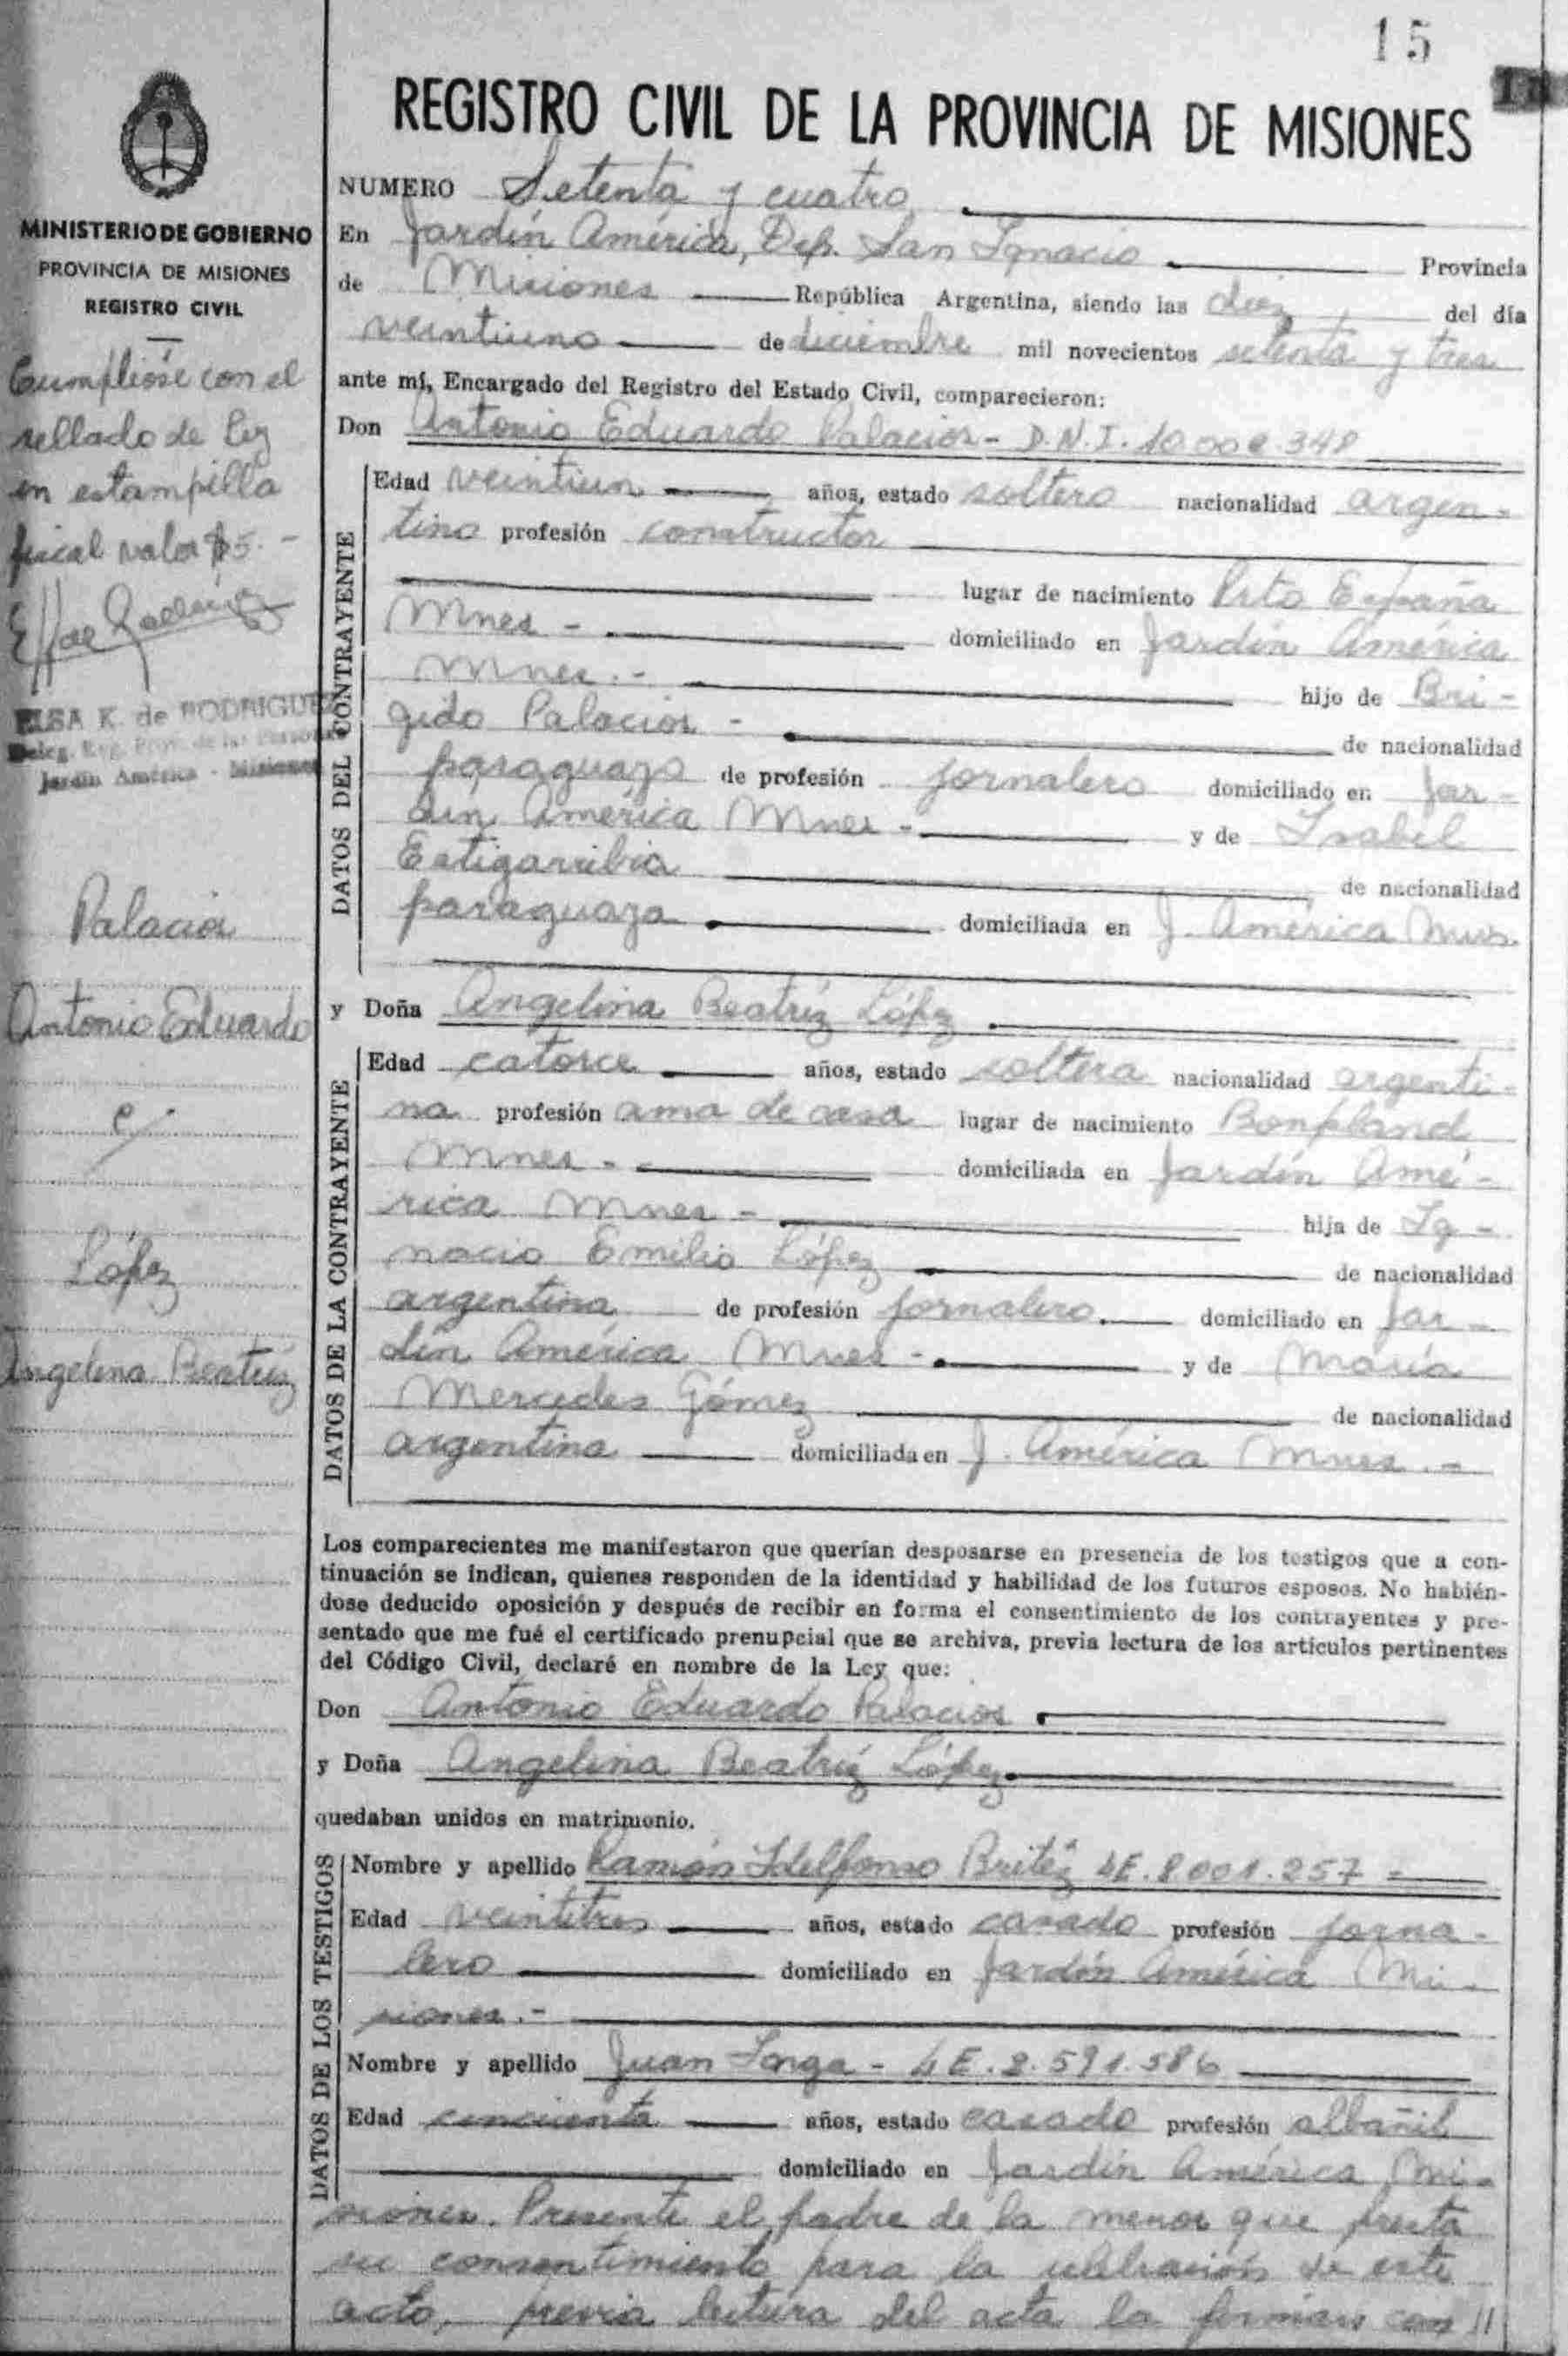 15
REGISTRO CIVIL DE LA PROVINCIA DE MISIONES
MINISTERIO DE GOBIERNO
PROVINCIA DE MISIONES
REGISTRO CIVIL
Cumplióse con el
sellado de ley
en estampilla
fiscal valor $5.-
ELSA K. de RODRIGUEZ
Jardín América - Misiones
Palacios
Antonio Eduardo
c/.
López
Angelina Beatríz
NUMERO Setenta y cuatro
En Jardín América, Dep. San Ignacio Provincia
de Misiones República Argentina, siendo las diez del día
veintiuno de diciembre mil novecientos setenta y tres
ante mí, Encargado del Registro del Estado Civil, comparecieron:
Don Antonio Eduardo Palacios - D.N.I.
DATOS DEL CONTRAYENTE
Edad veintiun años, estado soltero nacionalidad argen-
tino profesión constructor
lugar de nacimiento Pto España
Mnes - domiciliado en Jardín América
Mnes.- hijo de Bri-
gido Palacios - de nacionalidad
paraguayo de profesión jornalero domiciliado en Jar-
dín América Mnes - y de Isabel
Estigarribia de nacionalidad
paraguaya domiciliada en J. América Mnes.
y Doña Angelina Beatríz López
DATOS DE LA CONTRAYENTE
Edad catorce años, estado soltera nacionalidad argenti-
na profesión ama de casa lugar de nacimiento Bonpland
Mnes - domiciliada en Jardín Amé-
rica Mnes - hija de Ig-
nacio Emilio López de nacionalidad
argentina de profesión jornalero domiciliado en Jar-
dín América Mnes - y de María
Mercedes Gómez de nacionalidad
argentina domiciliada en J. América Mnes.-
Los comparecientes me manifestaron que querían desposarse en presencia de los testigos que a con-
tinuación se indican, quienes responden de la identidad y habilidad de los futuros esposos. No habién-
dose deducido oposición y después de recibir en forma el consentimiento de los contrayentes y pre-
sentado que me fué el certificado prenupcial que se archiva, previa lectura de los artículos pertinentes
del Código Civil, declaré en nombre de la Ley que:
Don Antonio Eduardo Palacios
y Doña Angelina Beatríz López
quedaban unidos en matrimonio.
DATOS DE LOS TESTIGOS
Nombre y apellido Ramón Idelfonso Britéz LE.8001.257
Edad veintitres años, estado casado profesión jorna-
lero domiciliado en Jardín América Mi-
siones.-
Nombre y apellido Juan - LE.2.591.586
Edad cincuenta años, estado casado profesión albañil
domiciliado en Jardín América Mi-
siones. Presente el padre de la menor que presta
su consentimiento para la celebración de este
acto, previa lectura del acta la firman con //